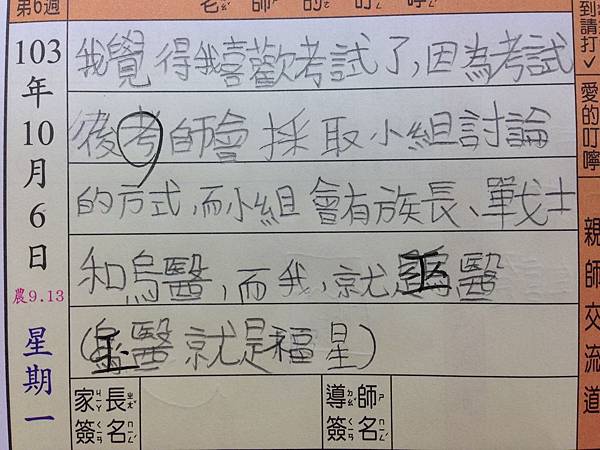 第6週
老師的叮嚀
到
請打✓
103年10月6日
農9.13
星期一
我覺得我喜歡考試了,因為考試
後考師會採取小組討論
的方式,而小組會有族長、戰士
和烏醫,而我,就是巫醫
(巫醫就是福星)
家長簽名
ㄐㄧㄚ ㄓㄤˇ ㄑㄧㄢ ㄇㄧㄥˊ
導師簽名
ㄉㄠˇ ㄕ ㄑㄧㄢ ㄇㄧㄥˊ
愛的叮嚀
親師交流道